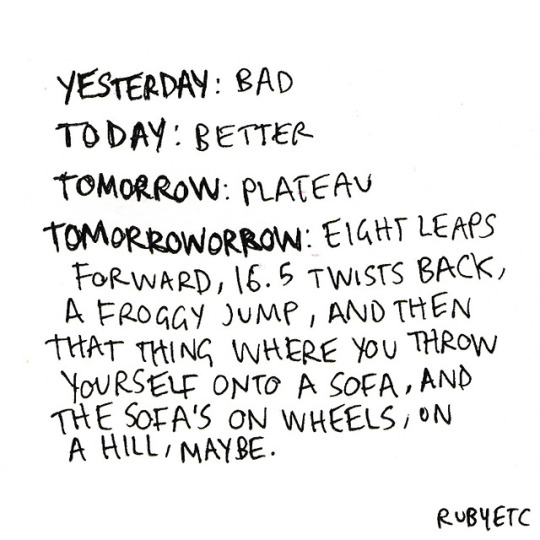 YESTERDAY: BAD
TODAY: BETTER
TOMORROW: PLATEAU
TOMORROWORROW: EIGHT LEAPS
FORWARD, 16.5 TWISTS BACK,
A FROGGY JUMP, AND THEN
THAT THING WHERE YOU THROW
YOURSELF ONTO A SOFA, AND
THE SOFA'S ON WHEELS, ON
A HILL, MAYBE.
RUBYETC